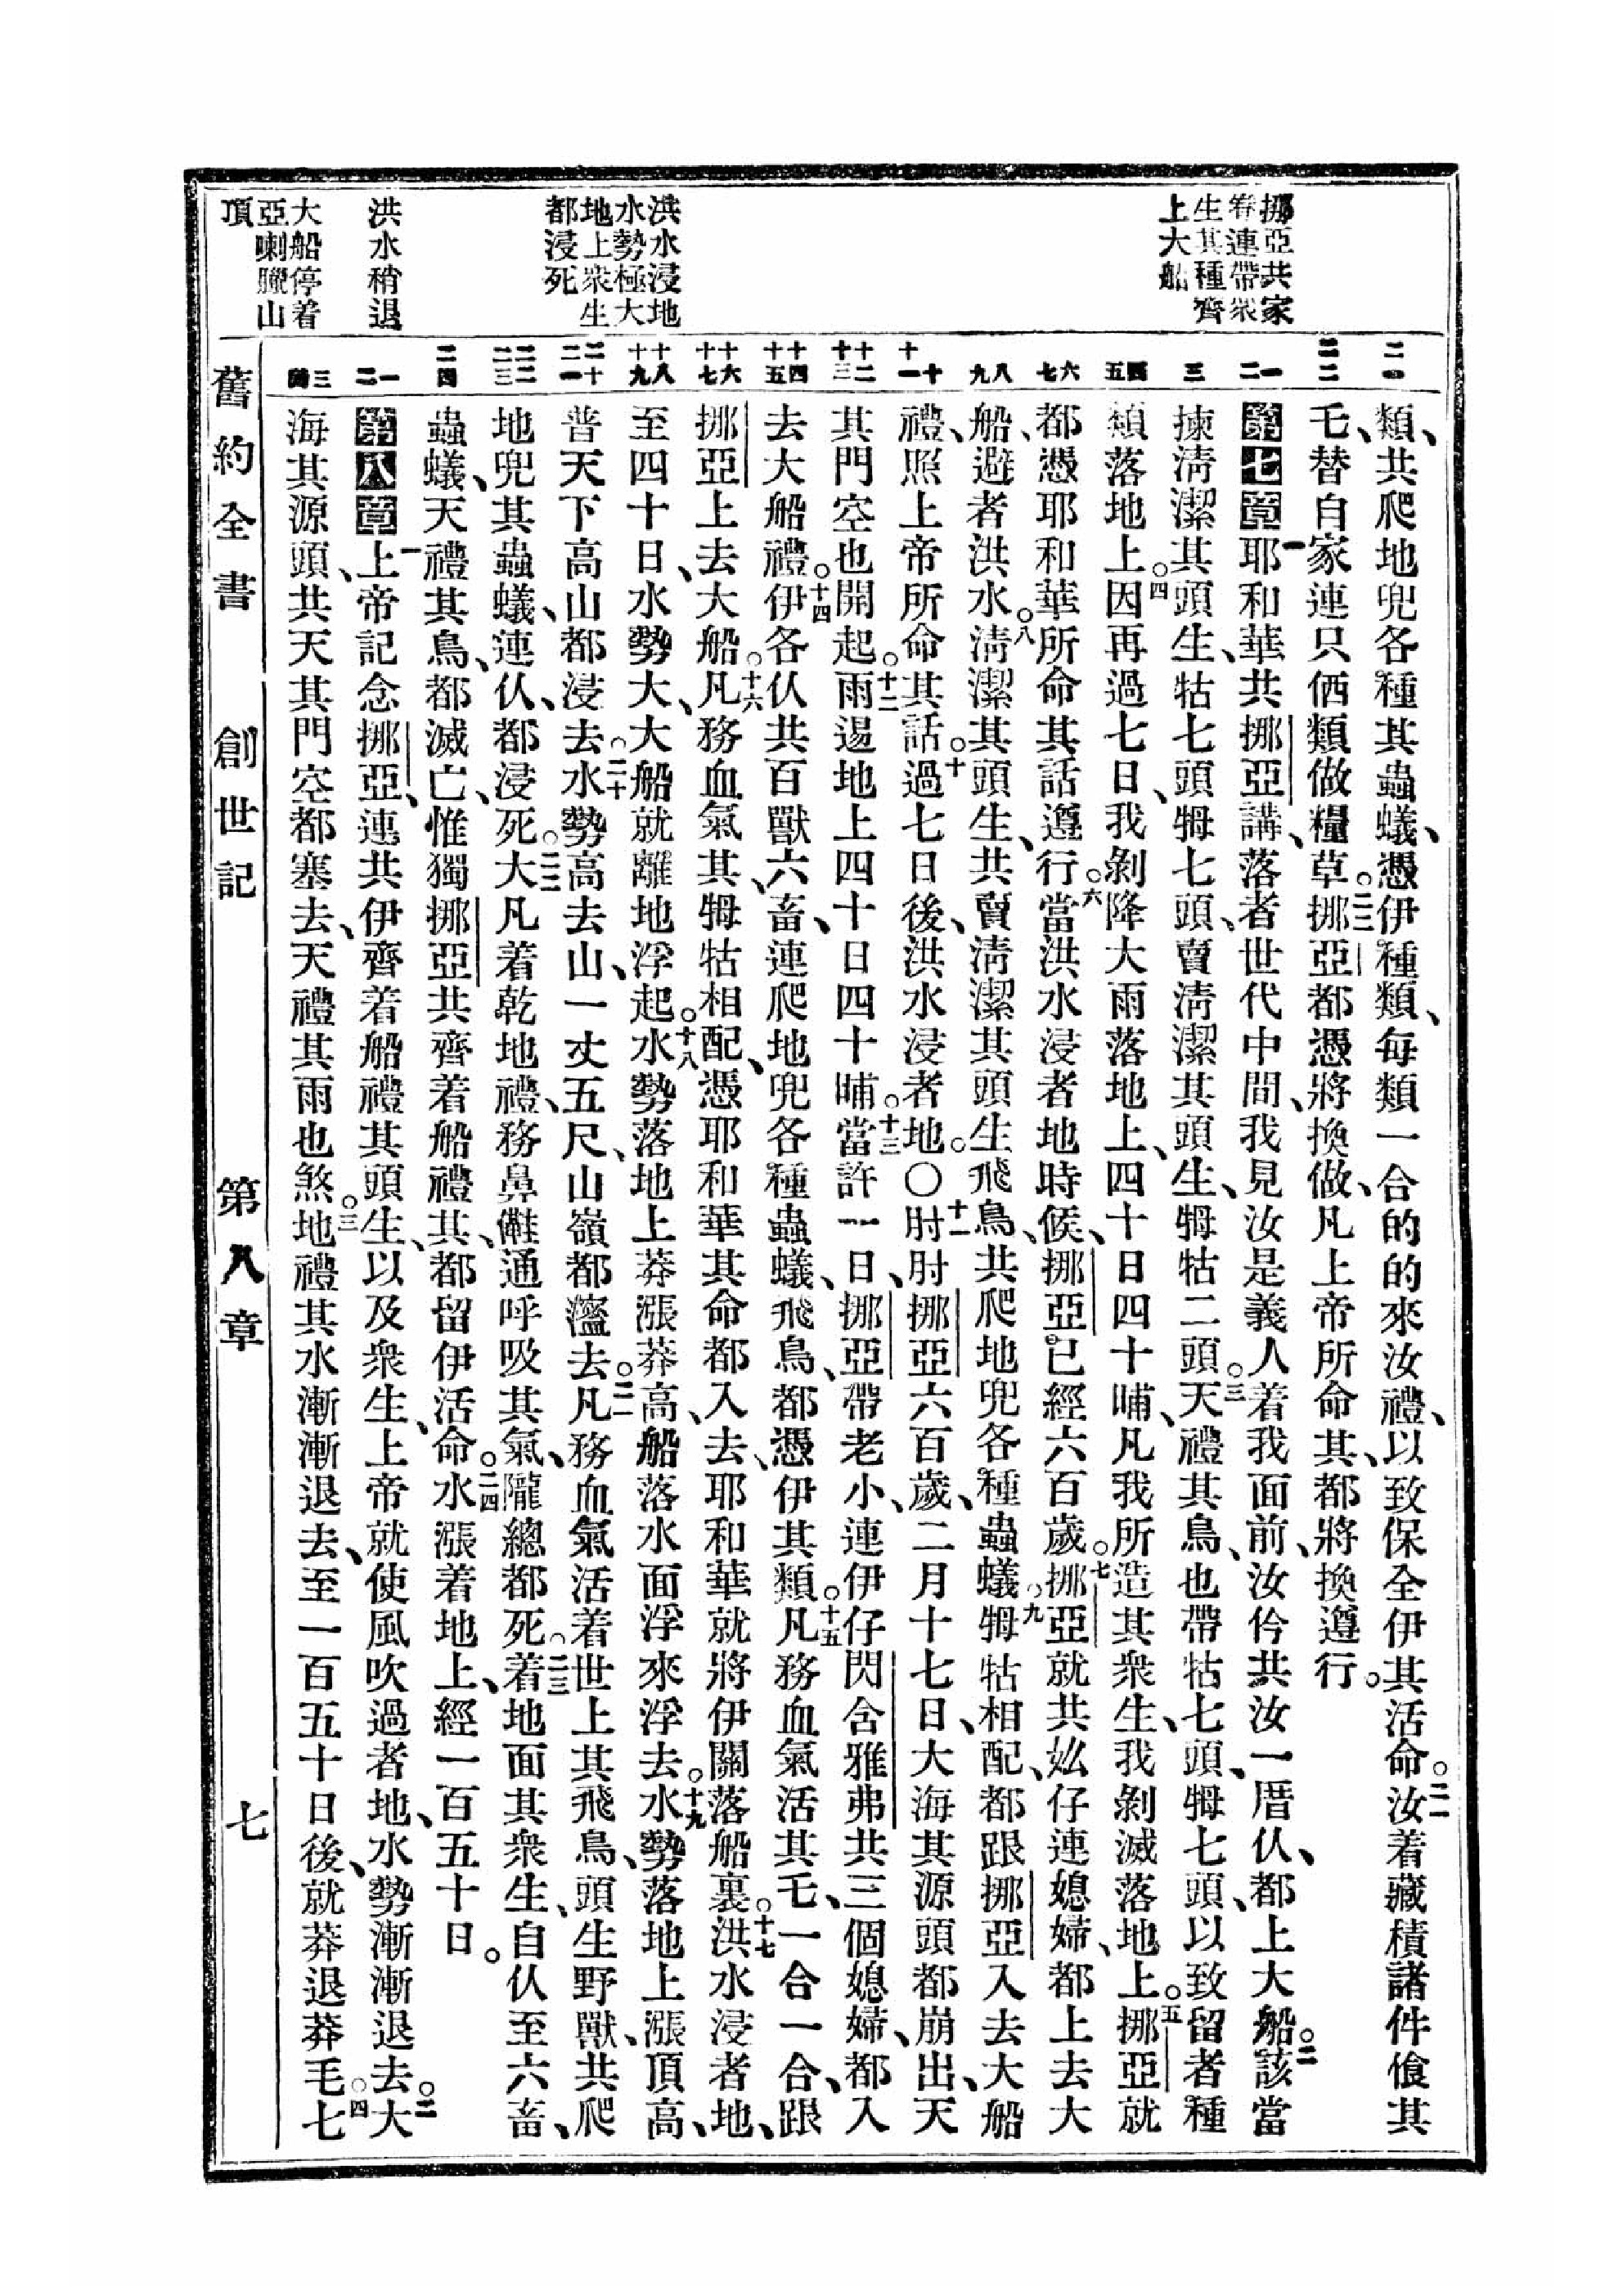 挪亞共家
眷連帶衆
生其種齊
上大船
洪水浸地
水勢極大
地上衆生
都浸死
洪水稍退
大船停着
亞喇臘山
頂
類、共爬地兜各種其蟲蟻、憑伊種類、每類一合的的來汝禮、以致保全伊其活命。二一汝着藏積諸件飡其
乇、替自家連只㑚類做糧草。二二挪亞都憑將換做、凡上帝所命其、都將換遵行。
第七章一耶和華共挪亞講、落者世代中間、我見汝是義人着我面前、汝仱共汝一厝仈、都上大船。二該當
揀淸潔其頭生、牯七頭牳七頭、賣淸潔其頭生、牳牯二頭。三天禮其鳥、也帶牯七頭、牳七頭、以致留者種
類落地上。四因再過七日、我剝降大雨落地上、四十日四十晡、凡我所造其衆生、我剝滅落地上。五挪亞就
都憑耶和華所命其話遵行。六當洪水浸者地時候、挪亞已經六百歲。七挪亞就共𡚸仔連媳婦、都上去大
船、避者洪水。八淸潔其頭生、共賣淸潔其頭生飛鳥、共爬地兜各種蟲蟻。九牳牯相配、都跟挪亞入去大船
禮、照上帝所命其話。十過七日後、洪水浸者地。〇十一肘肘挪亞六百歲、二月十七日、大海其源頭都崩出、天
其門空也開起。十二雨逿地上四十日四十晡。十三當許一日、挪亞帶老小、連伊仔閃含雅弗共三個媳婦、都入
去大船禮。十四伊各仈共百獸六畜、連爬地兜各種蟲蟻、飛鳥、都憑伊其類。十五凡務血氣活其乇、一合一合、跟
挪亞上去大船。十六凡務血氣其、牳牯相配、憑耶和華其命都入去、耶和華就將伊關落船裏。十七洪水浸者地、
至四十日、水勢大、大船就離地浮起。十八水勢落地上莽漲莽高、船落水面浮來浮去。十九水勢落地上漲頂高、
普天下高山都浸去。二十水勢高去山、一丈五尺、山嶺都㵯去。二一凡務血氣活着世上其飛鳥、頭生野獸、共爬
地兜其蟲蟻、連仈、都浸死。二二大凡着乾地禮、務鼻𪖐通呼吸其氣、隴總都死。二三着地面其衆生、自仈至六畜、
蟲蟻、天禮其鳥、都滅亡、惟獨挪亞共齊着船禮其、都留伊活命。二四水漲着地上、經一百五十日。
第八章一上帝記念挪亞、連共伊齊着船禮其頭生、以及衆生、上帝就使風吹過者地、水勢漸漸退去。二大
海其源頭、共天其門空都塞去、天禮其雨也煞。三地禮其水漸漸退去、至一百五十日後、就莽退莽乇。四七
舊約全書　創世記　第八章　七